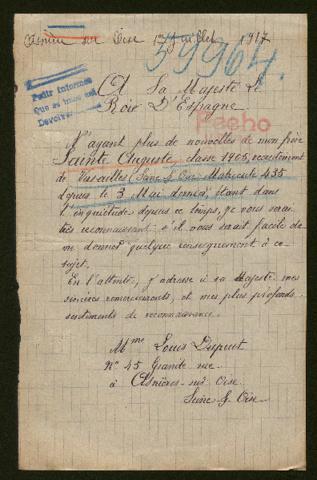 Asnières sur Oise 13 Juillet 1917
59964.
Pedir informes
Devolver
A Sa Majesté Le
Roie D'Espagne.
Fecho
N'ayant plus de nouvelles de mon frère
Sainte Auguste classe 1905, recrutement
de Versailles (Seine & Oise) Matricule 435
depuis le 3 Mai dernier, étant dans
l'inquiétude depuis ce temps, je vous serai
très reconnaissant s'il vous serait facile de
me donner quelque renseignement à ce
sujet.
En l'attente, j'adresse à sa Majesté mes
sincères remerciements, et mes plus profonds
sentiments de reconnaissance.
Mme Louis Dupuit
No 45 Grande rue
à Asnières-sur-Oise
Seine & Oise